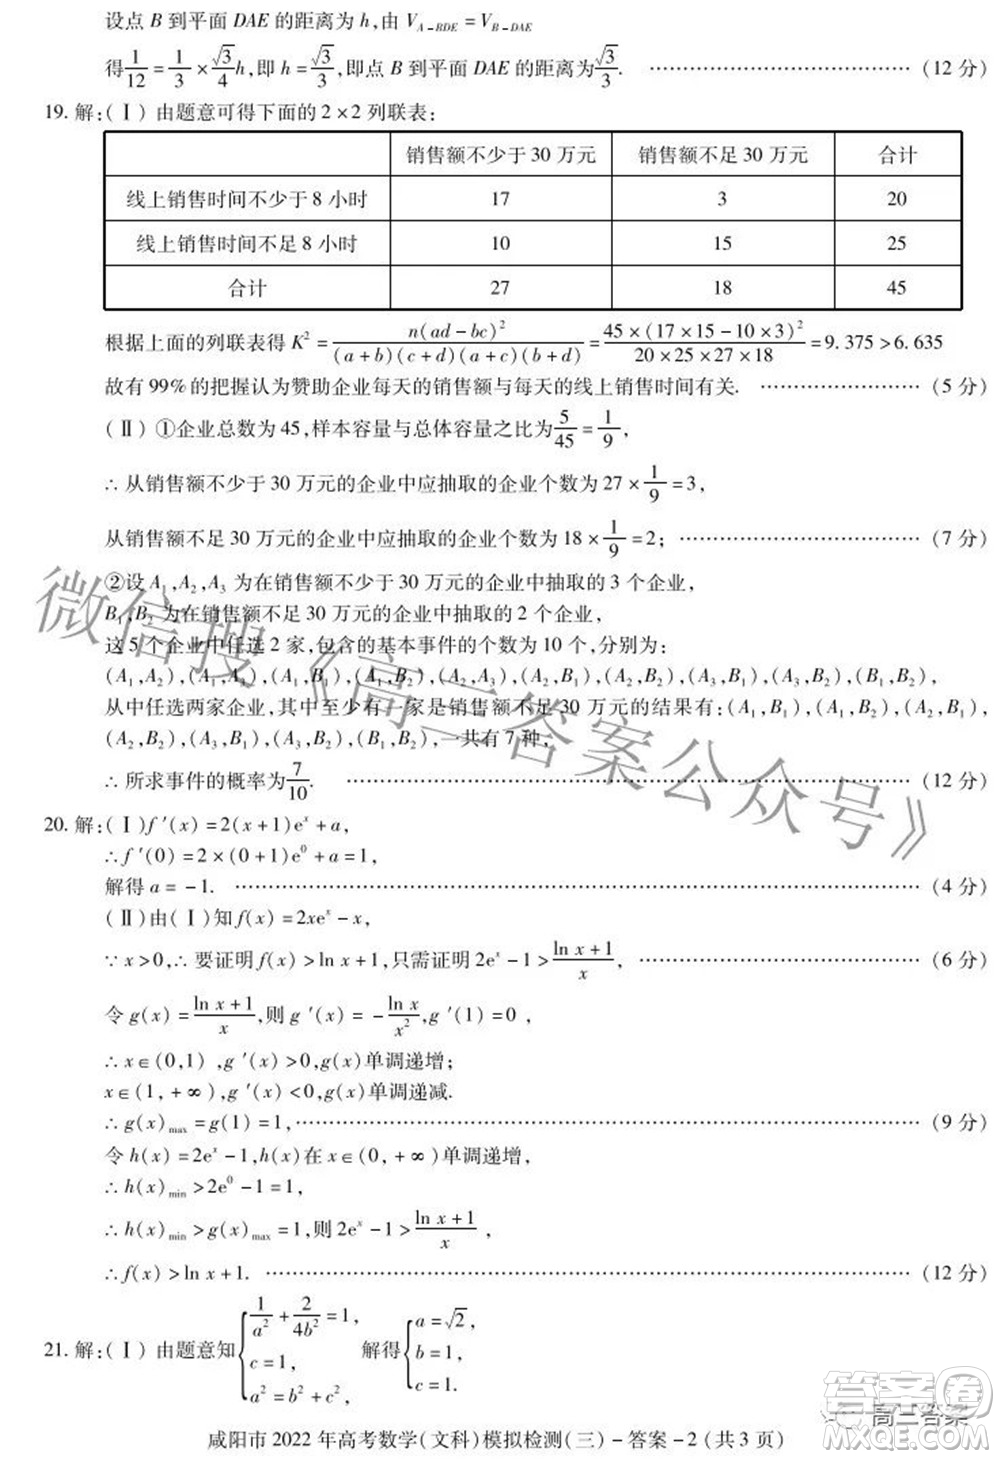 设点 B 到平面 DAE 的距离为 h,由 V_{A-BDE} = V_{B-DAE}
得 1/12 = 1/3 × √3/4 h,即 h = √3/3,即点 B 到平面 DAE 的距离为 √3/3. …………………………………… (12 分)
19. 解:(Ⅰ) 由题意可得下面的 2×2 列联表:
销售额不少于 30 万元 销售额不足 30 万元 合计
线上销售时间不少于 8 小时 17 3 20
线上销售时间不足 8 小时 10 15 25
合计 27 18 45
根据上面的列联表得 K² = n(ad-bc)²/((a+b)(c+d)(a+c)(b+d)) = 45×(17×15-10×3)²/(20×25×27×18) = 9.375 > 6.635
故有 99% 的把握认为赞助企业每天的销售额与每天的线上销售时间有关. …………………… (5 分)
(Ⅱ) ①企业总数为 45,样本容量与总体容量之比为 5/45 = 1/9,
∴ 从销售额不少于 30 万元的企业中应抽取的企业个数为 27 × 1/9 = 3,
从销售额不足 30 万元的企业中应抽取的企业个数为 18 × 1/9 = 2; ………………………………… (7 分)
②设 A₁,A₂,A₃ 为在销售额不少于 30 万元的企业中抽取的 3 个企业,
B₁,B₂ 为在销售额不足 30 万元的企业中抽取的 2 个企业,
这 5 个企业中任选 2 家,包含的基本事件的个数为 10 个,分别为:
(A₁,A₂),(A₁,A₃),(A₁,B₁),(A₁,B₂),(A₂,A₃),(A₂,B₁),(A₂,B₂),(A₃,B₁),(A₃,B₂),(B₁,B₂),
从中任选两家企业,其中至少有一家是销售额不足 30 万元的结果有:(A₁,B₁),(A₁,B₂),(A₂,B₁),
(A₂,B₂),(A₃,B₁),(A₃,B₂),(B₁,B₂),一共有 7 种,
∴ 所求事件的概率为 7/10. ………………………………………………………………………… (12 分)
20. 解:(Ⅰ) f′(x) = 2(x+1)eˣ + a,
∴ f′(0) = 2×(0+1)e⁰ + a = 1,
解得 a = -1. ………………………………………………………………………………………… (4 分)
(Ⅱ) 由(Ⅰ)知 f(x) = 2xeˣ - x,
∵ x>0,∴ 要证明 f(x) > ln x+1,只需证明 2eˣ - 1 > (ln x+1)/x, ……………………………………… (6 分)
令 g(x) = (ln x+1)/x,则 g′(x) = - ln x/x²,g′(1) = 0 ,
∴ x∈(0,1) ,g′(x)>0,g(x) 单调递增;
x∈(1,+∞),g′(x)<0,g(x) 单调递减.
∴ g(x)_{max} = g(1) = 1,…………………………………………………………………………………… (9 分)
令 h(x) = 2eˣ - 1,h(x) 在 x∈(0,+∞) 单调递增,
∴ h(x)_{min} > 2e⁰ - 1 = 1,
∴ h(x)_{min} > g(x)_{max} = 1,则 2eˣ - 1 > (ln x+1)/x ,
∴ f(x) > ln x+1. …………………………………………………………………………………… (12 分)
21. 解:(Ⅰ) 由题意知 { 1/a² + 2/4b² = 1, c = 1, a² = b² + c², 解得 { a = √2, b = 1, c = 1.
咸阳市 2022 年高考数学(文科)模拟检测(三) - 答案 - 2 (共 3 页)
微信搜《高三答案公众号》
高三答案
答案圈
MXQE.COM